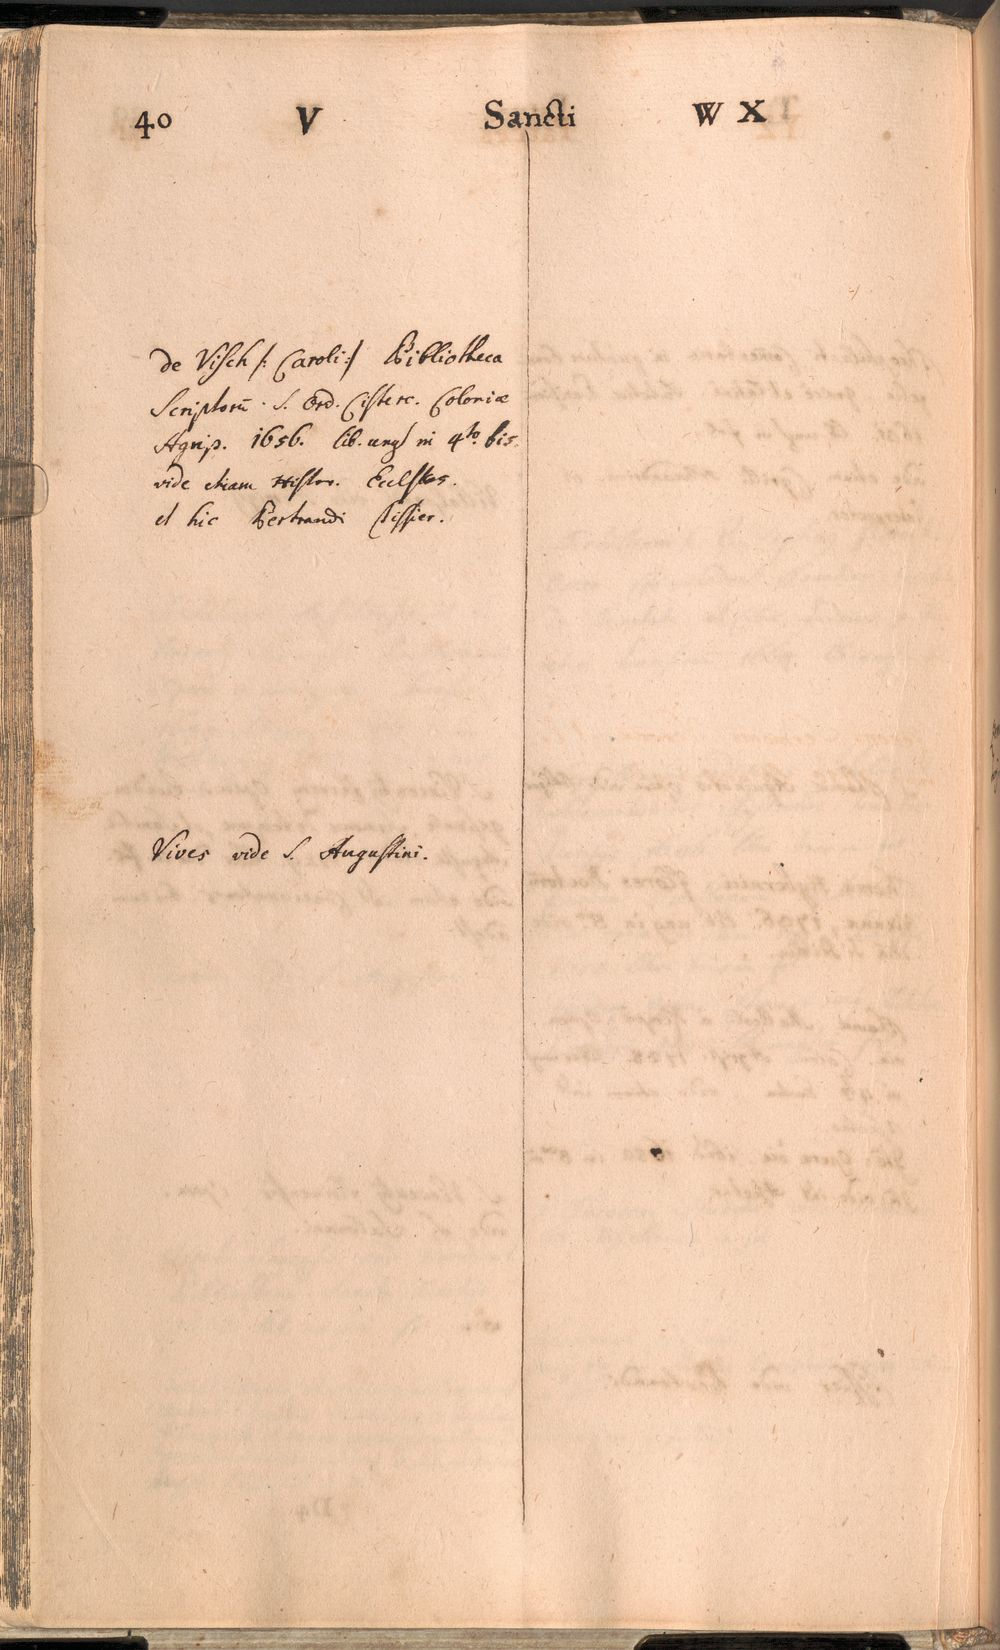 40 V Sancti W X
de Visch /: Caroli :/ Bibliotheca
Scriptorū. S. Ord. Cisterc. Coloniæ
Agrip. 1656. lib. ung in 4to. bis.
vide etiam Histor. Ecclstes.
et hic Bertrandi Tissier.
Vives vide S. Augustini.